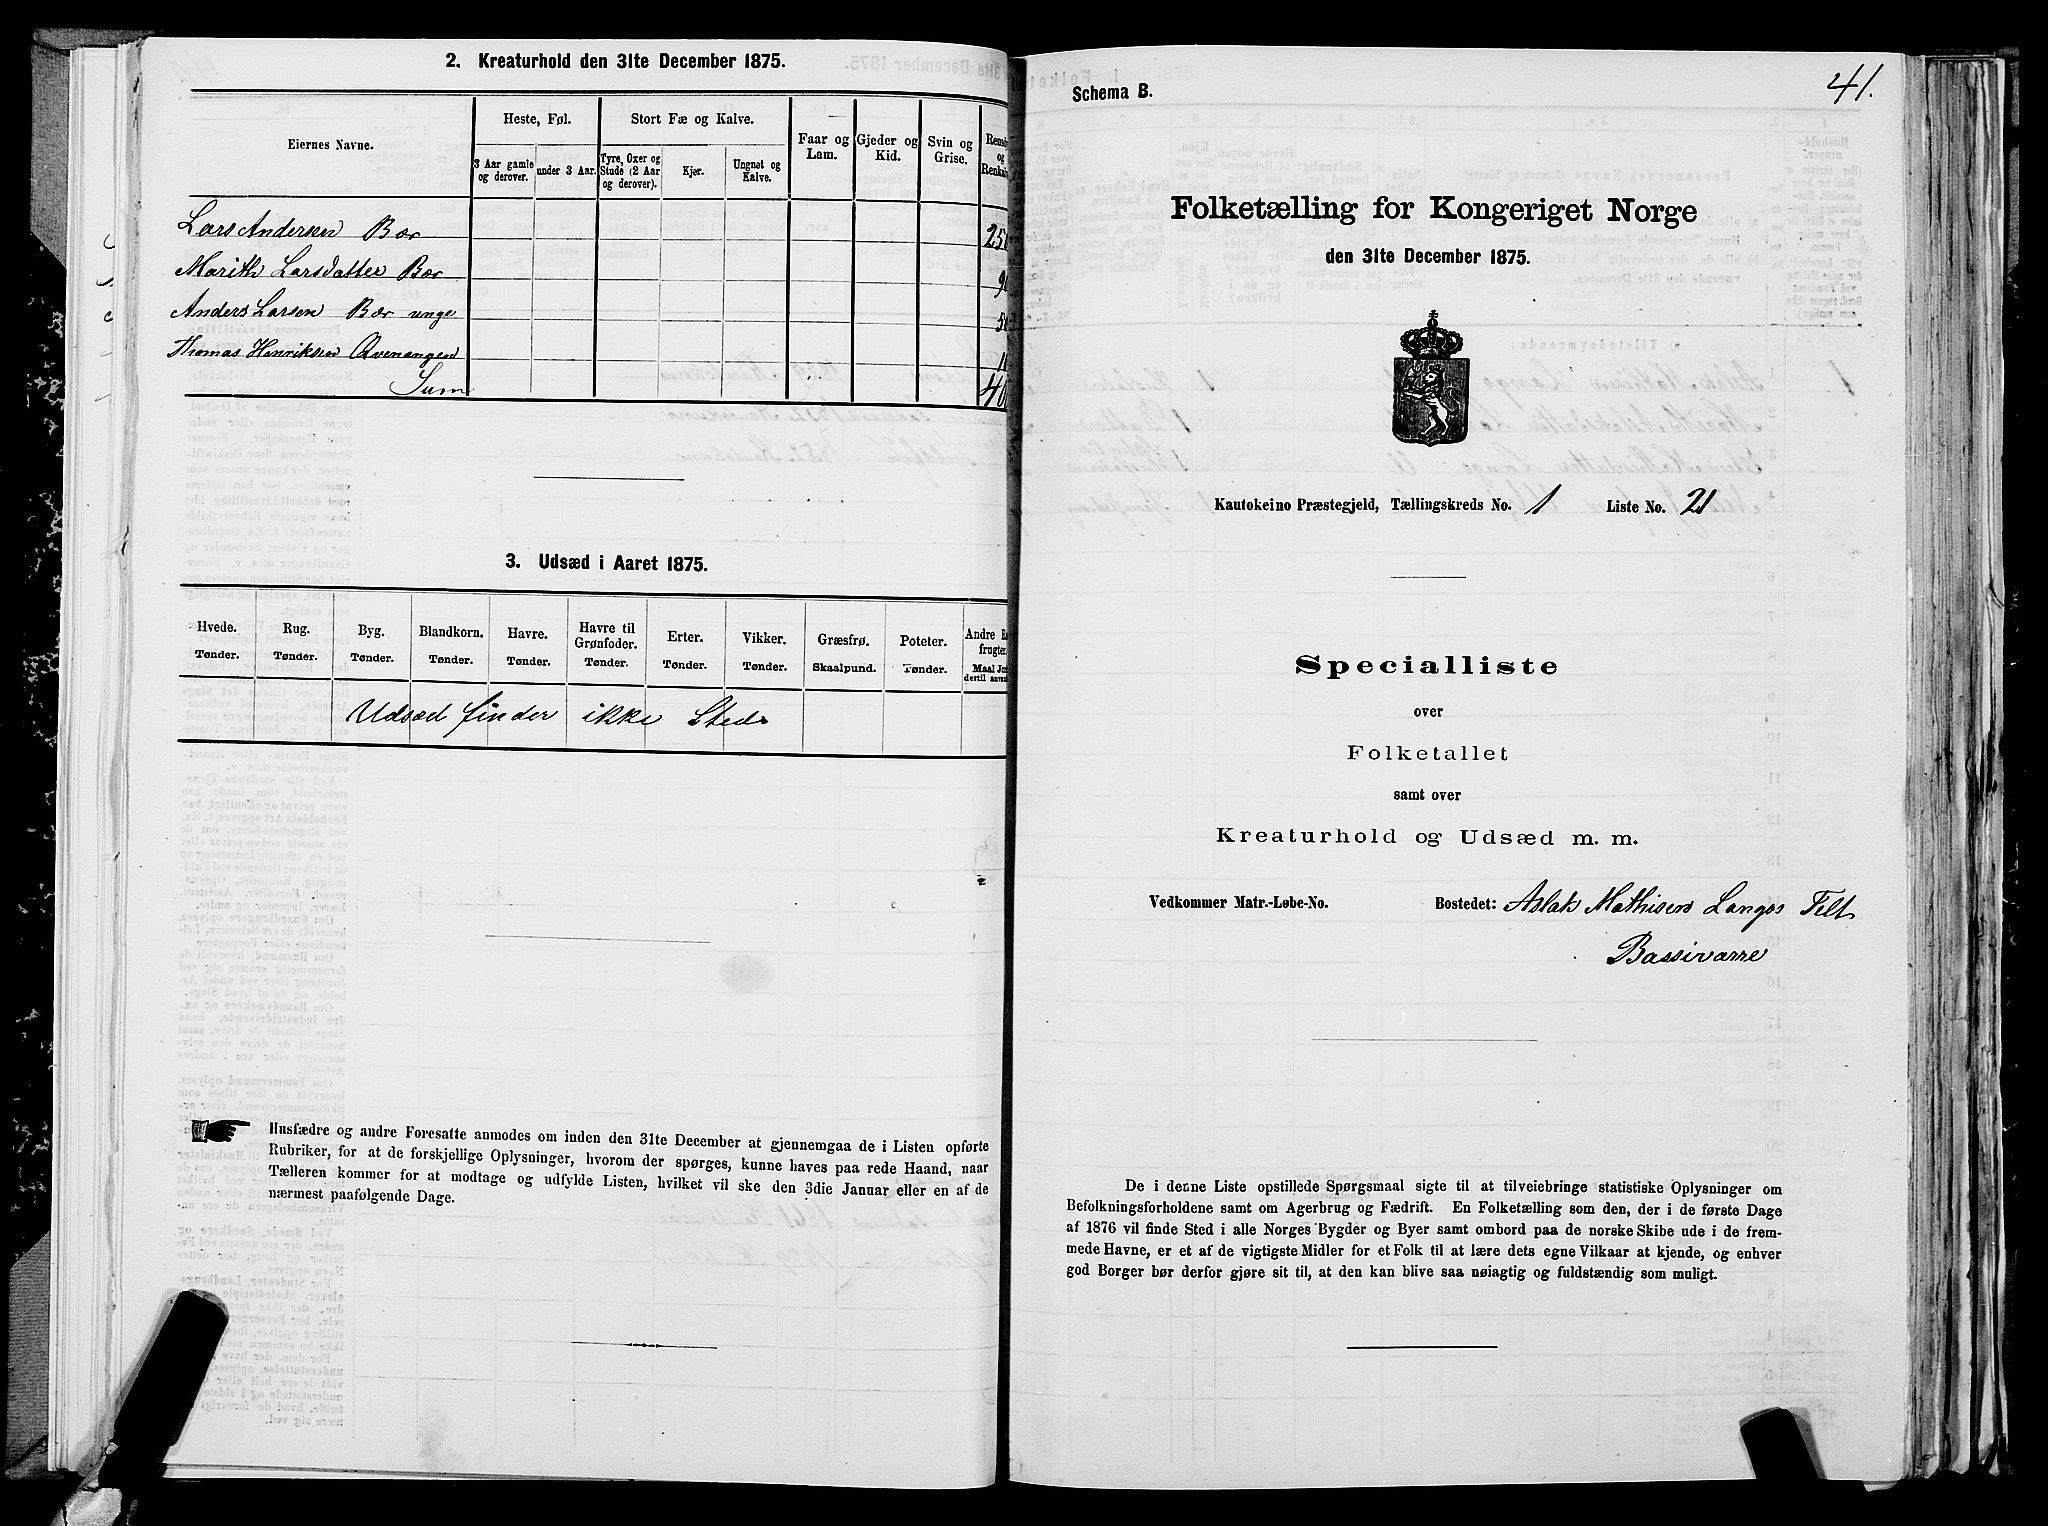 2. Kreaturhold den 31te December 1875.
Eiernes Navne.
Heste, Føl.
3 Aar gamle og derover.
under 3 Aar.
Stort Fæ og Kalve.
Tyre, Oxer og Stude (2 Aar og derover).
Kjør.
Ungnøt og Kalve.
Faar og Lam.
Gjeder og Kid.
Svin og Grise.
og
Lars Andersen Bær
Marith Larsdatter Bær
Anders Larsen Bær unge
Thomas Henriksen Qvenangen
Sum
3. Udsæd i Aaret 1875.
Hvede. Tønder.
Rug. Tønder.
Byg. Tønder.
Blandkorn. Tønder.
Havre. Tønder.
Havre til Grønfoder. Tønder.
Erter. Tønder.
Vikker. Tønder.
Græsfrø. Skaalpund.
Poteter. Tønder.
Andre
Udsæd finder ikke Sted
Husfædre og andre Foresatte anmodes om inden den 31te December at gjennemgaa de i Listen opførte
Rubriker, for at de forskjellige Oplysninger, hvorom der spørges, kunne haves paa rede Haand, naar
Tælleren kommer for at modtage og udfylde Listen, hvilket vil ske den 3die Januar eller en af de
nærmest paafølgende Dage.
41.
Schema B.
Folketælling for Kongeriget Norge
den 31te December 1875.
Kautokeino Præstegjeld, Tællingskreds No. 1 Liste No. 21
Specialliste
over
Folketallet
samt over
Kreaturhold og Udsæd m. m.
Vedkommer Matr.-Løbe-No. Bostedet: Aslak Mathisens Langos Telt
Bassivarre
De i denne Liste opstillede Spørgsmaal sigte til at tilveiebringe statistiske Oplysninger om
Befolkningsforholdene samt om Agerbrug og Fædrift. En Folketælling som den, der i de første Dage
af 1876 vil finde Sted i alle Norges Bygder og Byer samt ombord paa de norske Skibe ude i de frem-
mede Havne, er et af de vigtigste Midler for et Folk til at lære dets egne Vilkaar at kjende, og enhver
god Borger bør derfor gjøre sit til, at den kan blive saa nøiagtig og fuldstændig som muligt.